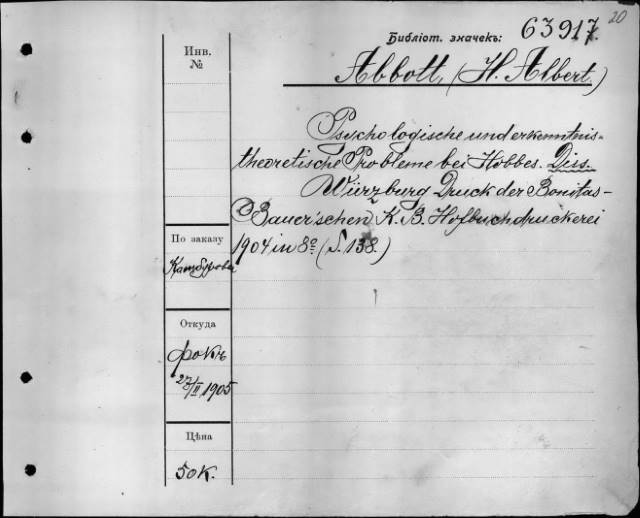 20
Библіот. значекъ: 63917.
Инв.
№
Abbott, (H. Albert.)
Psychologische und erkenntnis-
theoretische Probleme bei Hobbes. Diss.
Würzburg Druck der Bonitas-
Bauer'schen K. B. Hofbuchdruckerei
1904 in 8º (S. 138.)
По заказу
Откуда
Фокъ
27/II 1905
Цѣна
50 к.